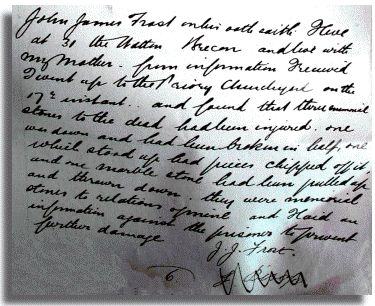 John James Frost on his oath saith: I live
at 31 the Watton Brecon and live with
my Mother. from information I received
I went up to the Priory Churchyard on the
17th instant. and found that three memorial
stones to the dead had been injured. one
was down and had been broken in half, one
which stood up had pieces chipped off it
and one marble stone had been pulled up
and thrown down. they were memorial
stones to relations of mine and I laid an
information against the prisoner to prevent
further damage
J. J. Frost.